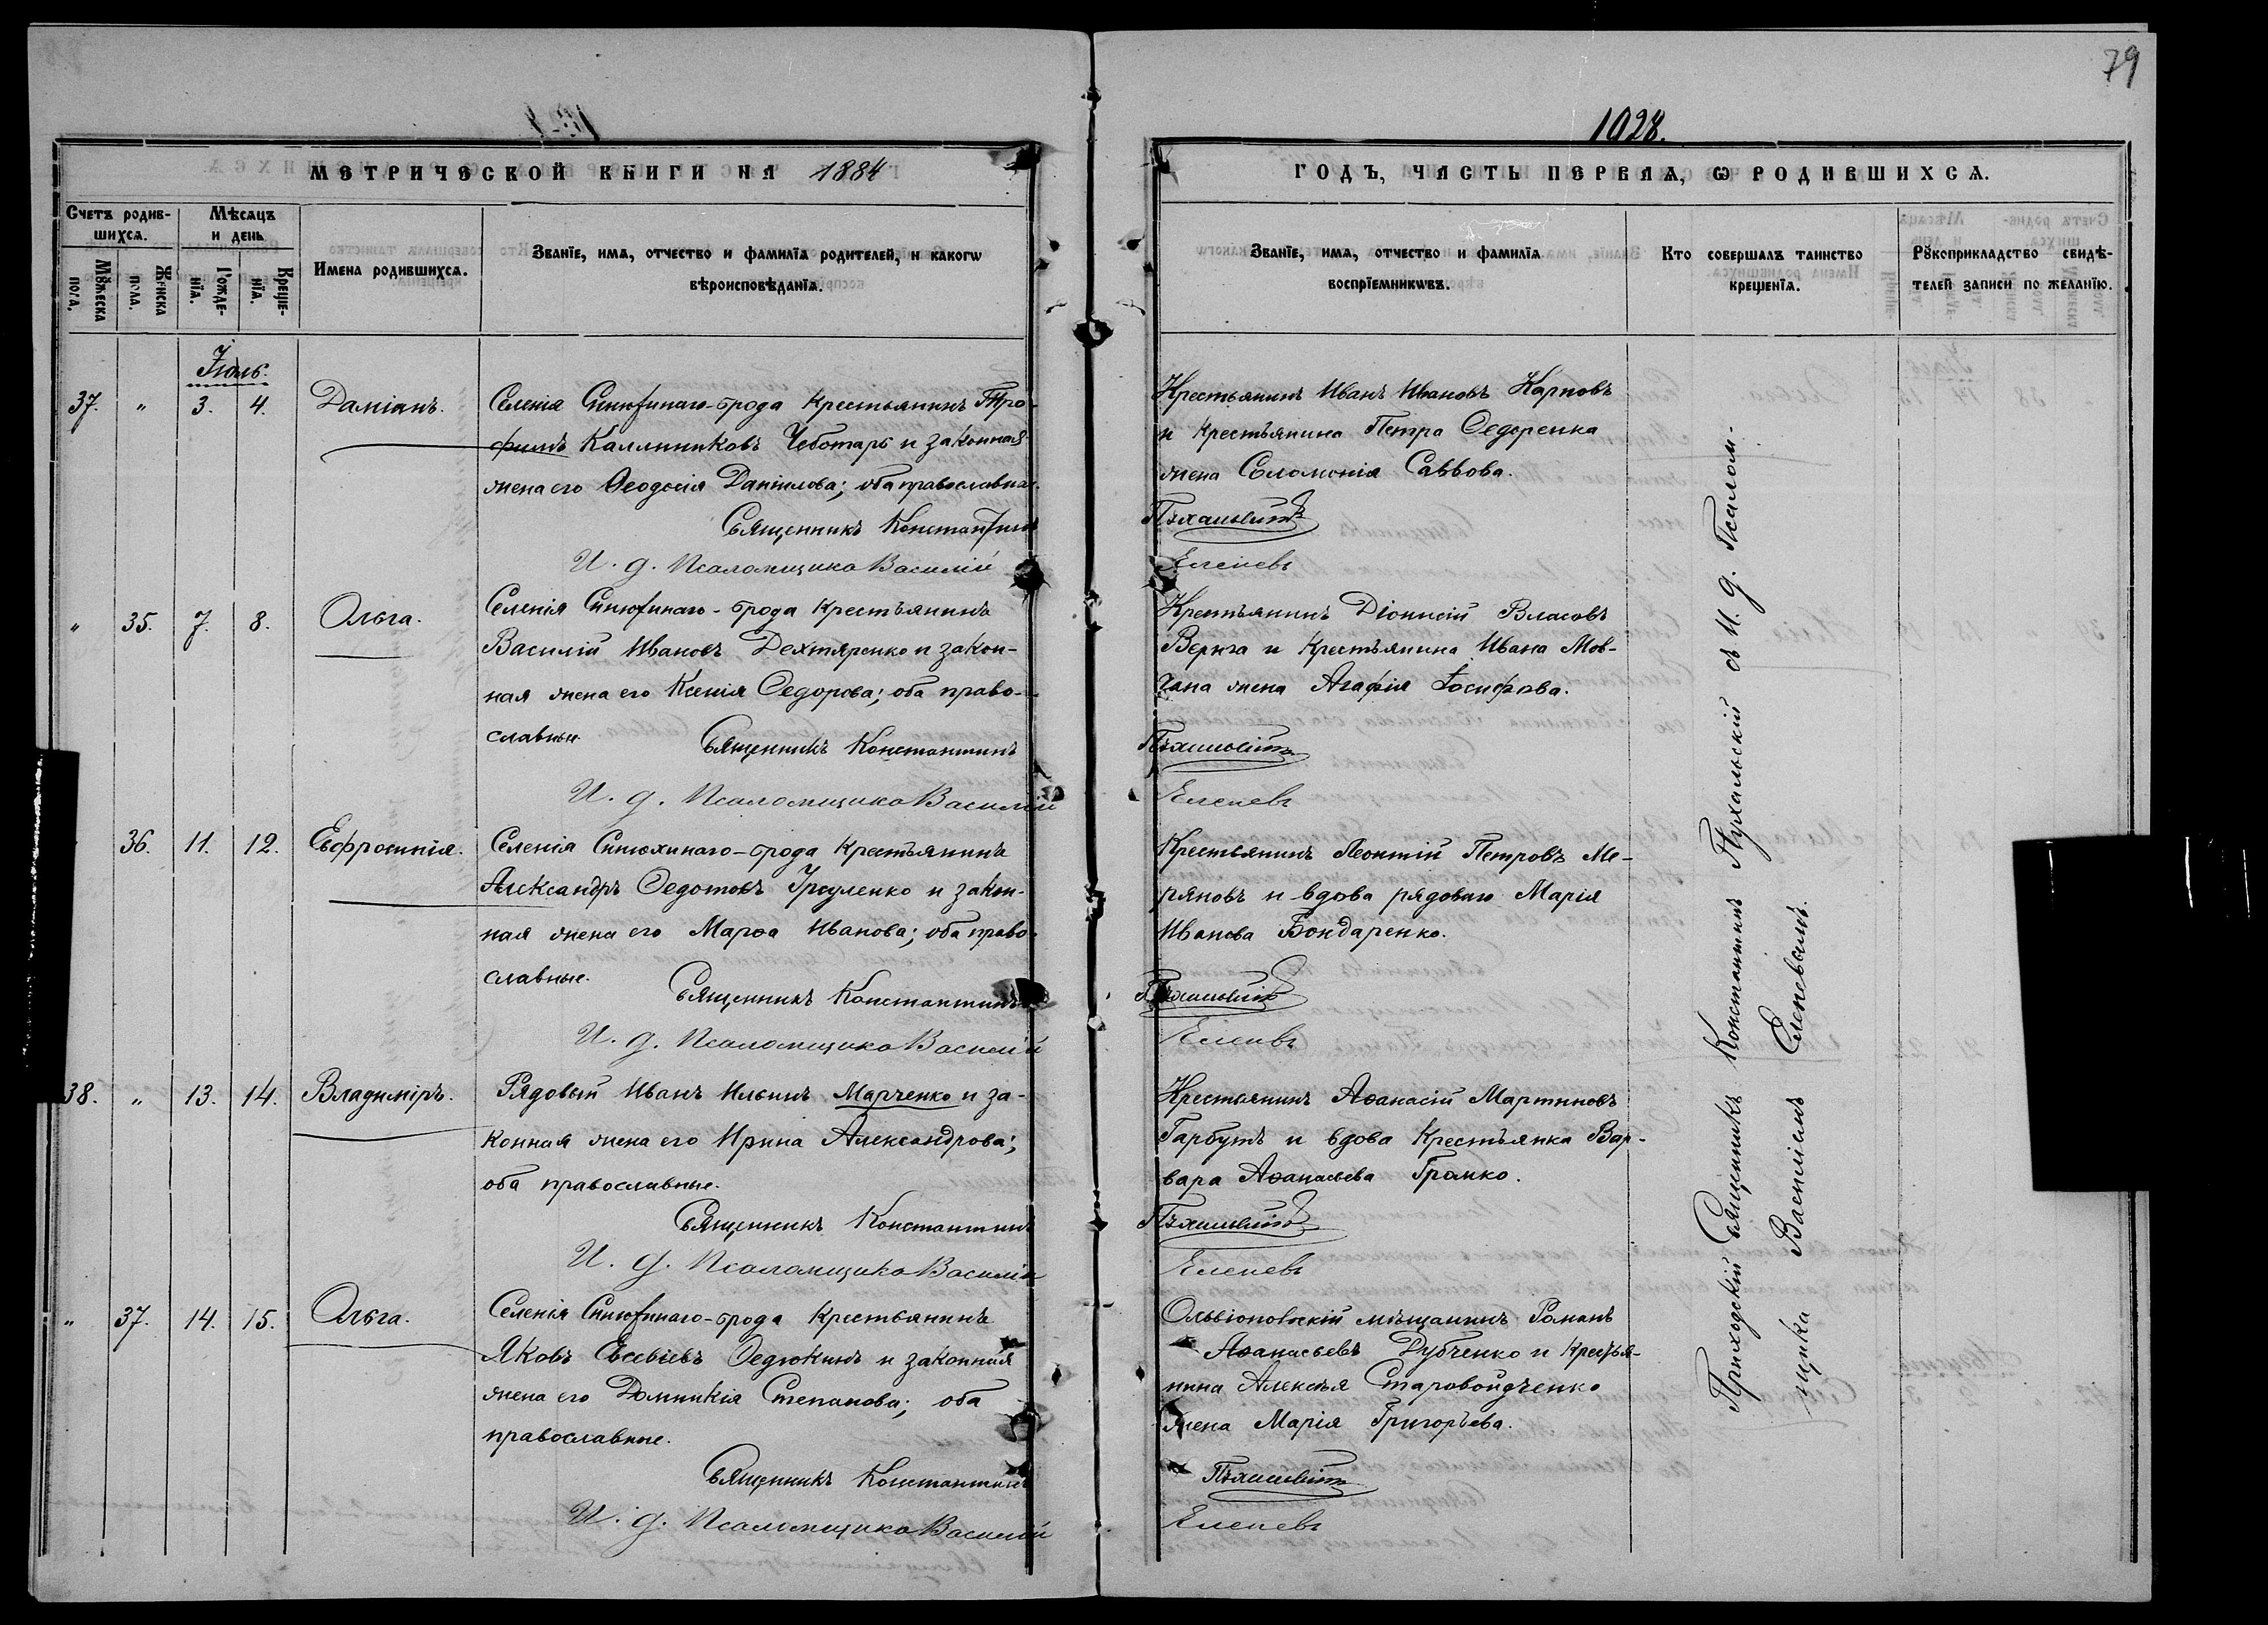 79
1028.
МЕТРИЧЕСКОЙ КНИГИ НА 1884
ГОДЪ, ЧАСТЬ ПЕРВАЯ, Ѡ РОДИВШИХСЯ.
Счетъ родив-
шихся.
Мѣсяцъ
и день
Мꙋжеска
пола.
Женска
пола.
Рожде-
нїя.
Креще-
нїя.
Имена родившихся.
Званїе, имя, отчество и фамилїя родителей, и какогѡ
вѣроисповѣданїя.
Званїе, имя, отчество и фамилїя
воспрїемникѡвъ.
Кто совершалъ таинство
крещенїя.
Рꙋкоприкладство свидѣ-
телей записи по желанїю.
Іюль.
37. " 3. 4. Даміанъ.
Селенія Синюхинаго-брода крестьянинъ Тро-
фимъ Каллиниковъ Чеботарь и законная
жена его Ѳеодосія Даніилова; оба православные.
Священникъ Константинъ
И. д. Псаломщика Василій
Крестьянинъ Иванъ Ивановъ Карповъ
и крестьянина Петра Ѳедоренка
жена Соломонія Саввова.
Еленевъ
" 35. 7. 8. Ольга.
Селенія Синюхинаго-брода крестьянинъ
Василій Ивановъ Дехтяренко и закон-
ная жена его Ксенія Ѳедорова; оба право-
славные.
Священникъ Константинъ
И. д. Псаломщика Василій
Крестьянинъ Діонисій Власовъ
Верига и крестьянина Ивана Мов-
чана жена Агафія Іосифова.
Еленевъ
36. 11. 12. Евфросинія.
Селенія Синюхинаго-брода крестьянинъ
Александръ Ѳедотовъ и закон-
ная жена его Марѳа Иванова; оба право-
славные.
Священникъ Константинъ
И. д. Псаломщика Василій
Крестьянинъ Леонтій Петровъ Ме-
ряновъ и вдова рядоваго Марія
Иванова Бондаренко.
Еленевъ
38. " 13. 14. Владиміръ.
Рядовый Иванъ Ильинъ Марченко и за-
конная жена его Ирина Александрова;
оба православные.
Священникъ Константинъ
И. д. Псаломщика Василій
Крестьянинъ Аѳанасій Мартиновъ
Гарбузъ и вдова крестьянка Вар-
вара Аѳанасьева Громко.
Еленевъ
" 37. 14. 15. Ольга.
Селенія Синюхинаго-брода крестьянинъ
Яковъ Евсевіевъ Ѳедюкинъ и законная
жена его Домникія Степанова; оба
православные.
Священникъ Константинъ
И. д. Псаломщика Василій
Ольвіопольскій мѣщанинъ Романъ
Аѳанасьевъ Дубченко и крестья-
нина Алексѣя Старовойдченко
жена Марія Григорьева.
Еленевъ
Приходскій Священникъ Константинъ Пухальскій съ И. д. Псалом-
щика Василіемъ Еленевымъ.